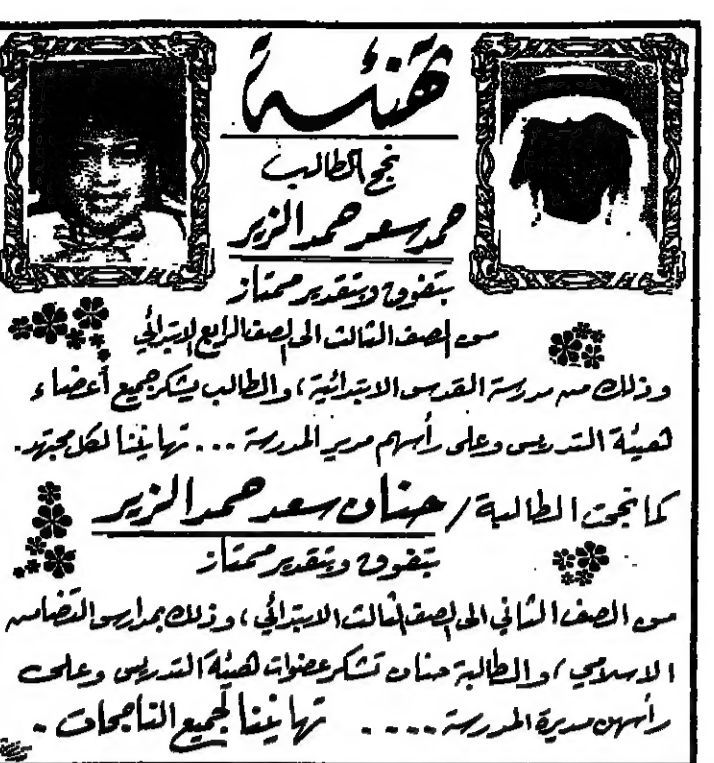 تهنئة
نجح الطالب
حمد سعد حمد الزير
بتفوق وبتقدير ممتاز
من الصف الثالث الى الصف الرابع الابتدائي
وذلك من مدرسة القدس الابتدائية، والطالب يشكر جميع أعضاء
هيئة التدريس وعلى رأسهم مدير المدرسة ... تهانينا لكل مجتهد.
كما نجحت الطالبة / حنان سعد حمد الزير
بتفوق وبتقدير ممتاز
من الصف الثاني الى الصف الثالث الابتدائي، وذلك بمدارس التضامن
الاسلامي، والطالبة حنان تشكر عضوات هيئة التدريس وعلى
رأسهن مديرة المدرسة ..... تهانينا لجميع الناجحات.